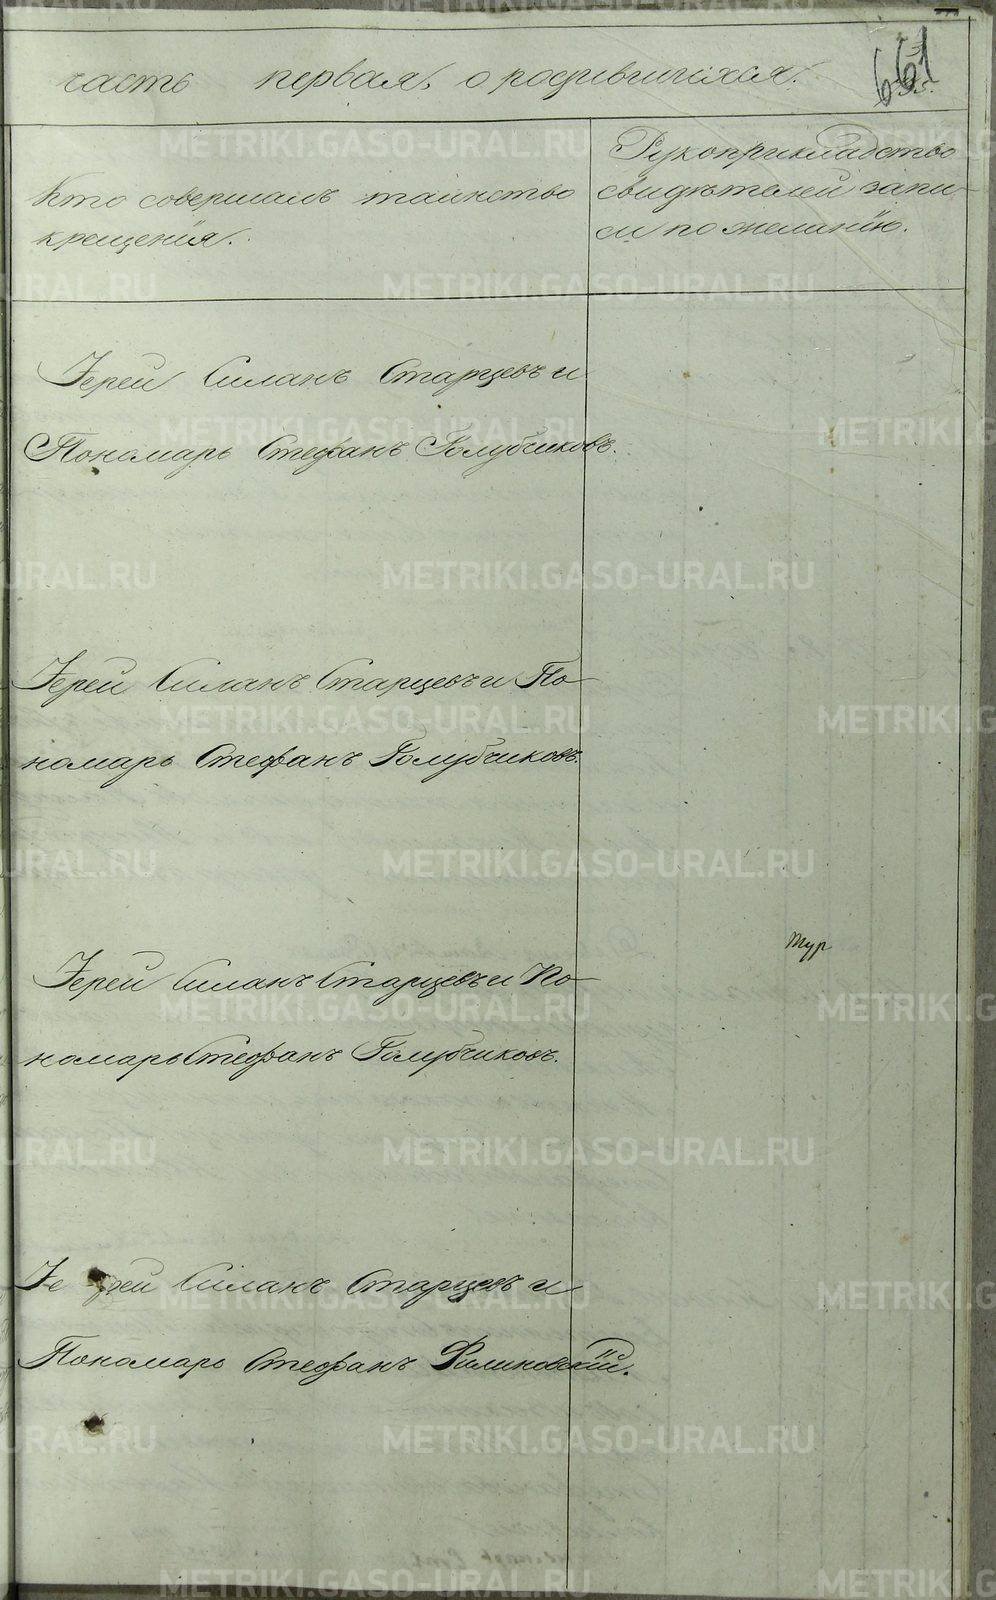 часть первая, о родившихся.
661
Кто совершалъ таинство
крещенія.
Рукоприкладство
свидѣтелей запи-
си по желанію.
Іерей Силанъ Старцевъ и
Пономарь Стефанъ Голубчиковъ.
Іерей Силанъ Старцевъ и По-
номарь Стефанъ Голубчиковъ.
Іерей Силанъ Старцевъ и По-
номарь Стефанъ Голубчиковъ.
тур
Іерей Силанъ Старцевъ и
Пономарь Стефанъ Филиновскій.
METRIKI.GASO-URAL.RU